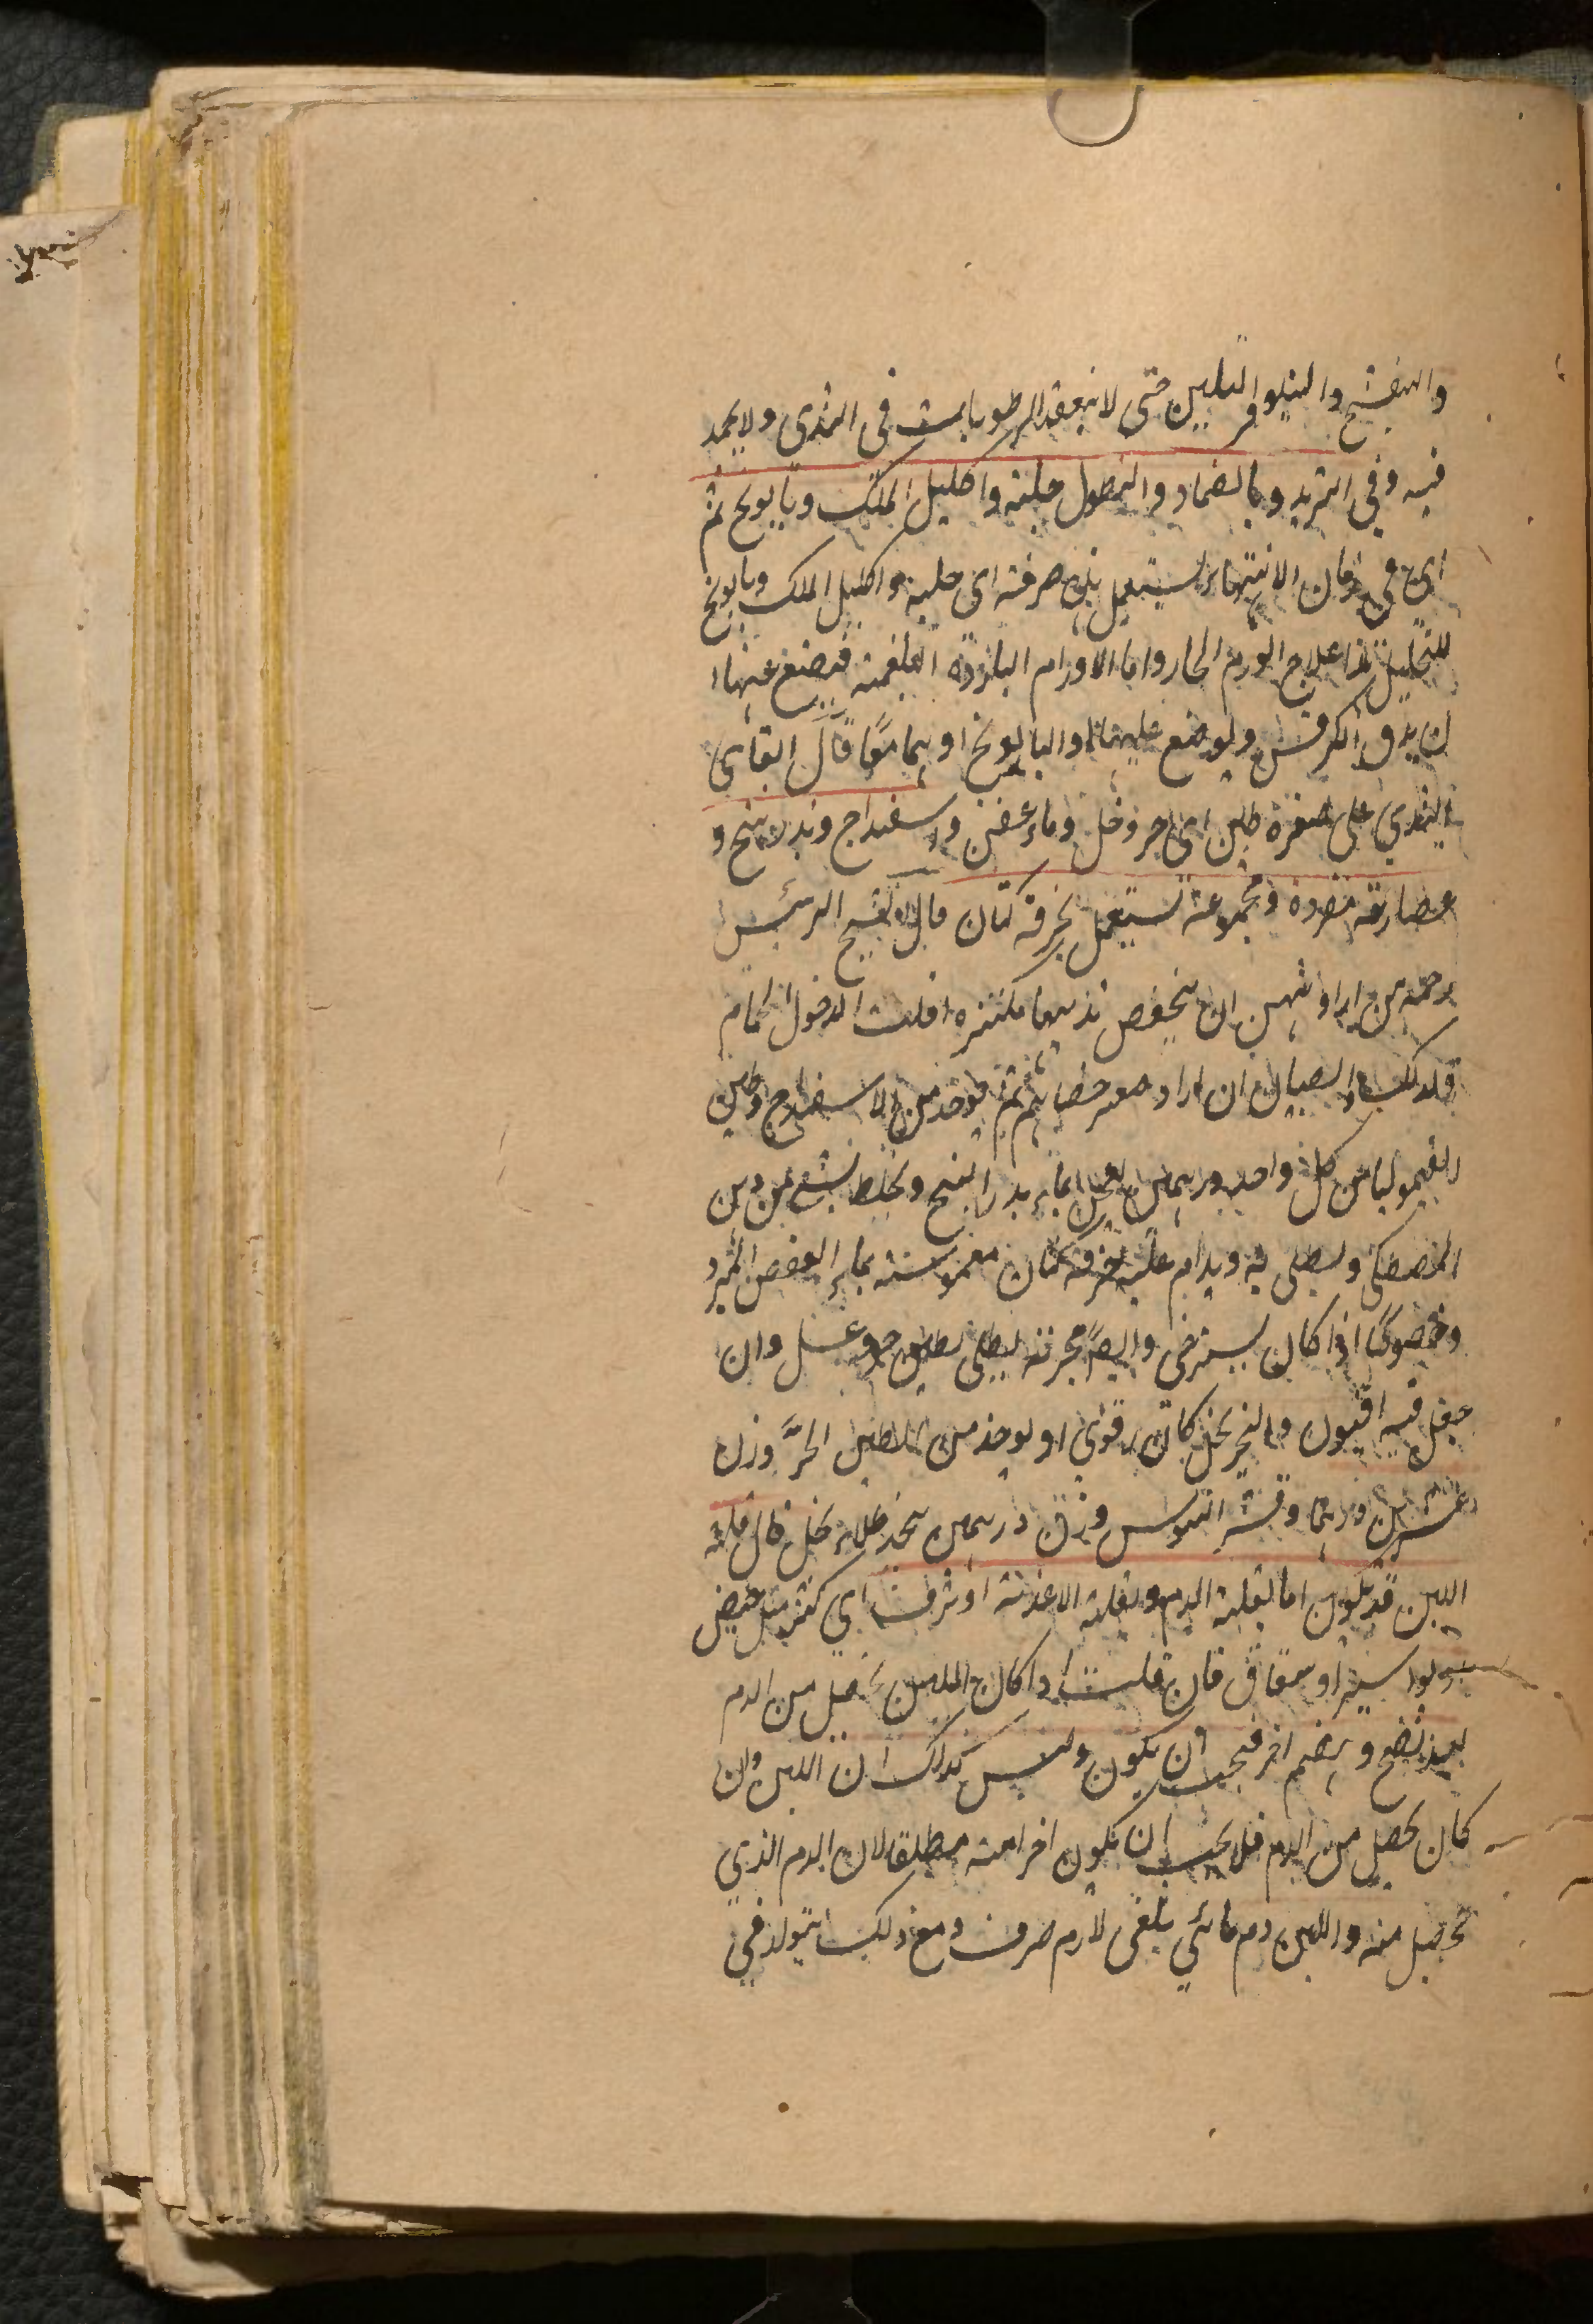 والبنفسج والنيلوفر التليين حتى لا ينعقد الرطوبات فى الثدى ولا يجمد
فيه وفى التزيد وبالضماد والنطول حلبة واكليل الملك وبابونج ثم
اى فى زمان الانتهاء يستعمل بذى صرفة اى حلبة واكليل الملك وبابونج
للتحليل هذا علاج الورم الحار واما الاورام الباردة البلغمية فيضع عنها ا
ن يدق الكرفس ويوضع عليها والبابونج او بهما معًا قال القائ
الثدي على صغره طين اى حر وخل وماء عفص واسفيداج وبذر بنج و
عصارته مفردة ومجموعة تستعمل بخرقة كتان قال الشيخ الرئيس
رحمه من اراد منهن ان يحفص ثديها مكتنزه اقلت الدخول الحمام
وكذلك الصبيان ان اراد صغر خصاهم ثم يوخذ من الاسفيداج وطين
القيموليا من كل واحد درهمين يعجن بماء بذر البنج ويخلط بشئ من دهن
المصطكى ويطلى به ويدام عليه خرقة كتان مغموسة بماء العفص المبرد
وخصوصًا اذا كان يسترخى وايضًا مجربة يطلى بطين حر وعسل وان
جعل فيه افيون والنجر بخل كان قوى او يوخذ من الطين الحرّ وزن
عشرين درهما وقشر التوس وزن درهمين يتخذ طلاء بخل قال قلة
اللبن قد تكون اما لقلة الدم ولقلة الاغذية او نزف اى كثير مثل حيض
وبواسير او سقاق فان قلت اذا كان اللبن يحصل من الدم
بعد نضج وهضم اخر فيجب ان يكون وليس كذلك ان اللبن وان
كان يحصل من الدم فلا يجب ان يكون اخر امنه مطلقا لان الدم الذى
تحصل منه واللبن دم مائي بلغمى لا دم صرف ومع ذلك يتولد فى